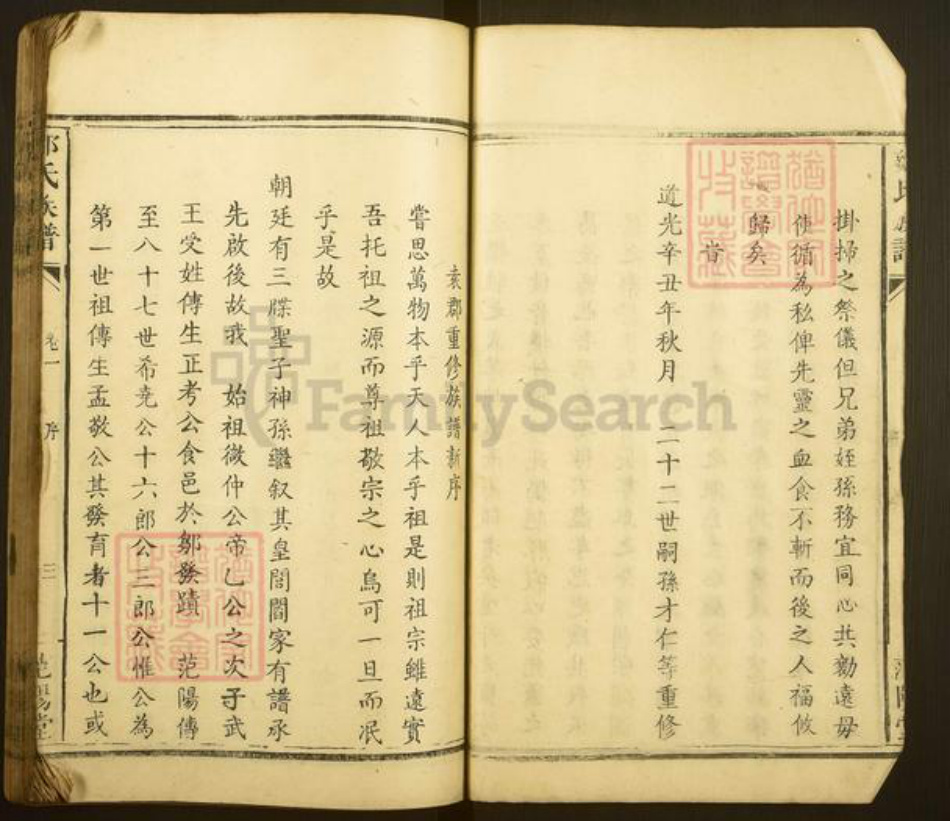 掛掃之祭儀但兄弟姪孫務宜同心共勷遠毋
使循為私俾先靈之血食不斬而後之人福攸
歸矣
旹
道光辛丑年秋月 二十二世嗣孫才仁等重修
袁郡重修族譜新序
嘗思萬物本乎天人本乎祖是則祖宗雖遠實
吾托祖之源而尊祖敬宗之心烏可一旦而泯
乎是故
朝廷有三牒聖子神孫繼叙其皇閭閻家有譜承
先啟後故我 始祖微仲公帝乙公之次子武
王受姓傳生正考公食邑於鄒發蹟 范陽傳
至八十七世希堯公十六郎公三郎公惟公為
第一世祖傳生孟敬公其發育者十一公也或
氏族譜
卷一 序 三
范陽堂
FamilySearch